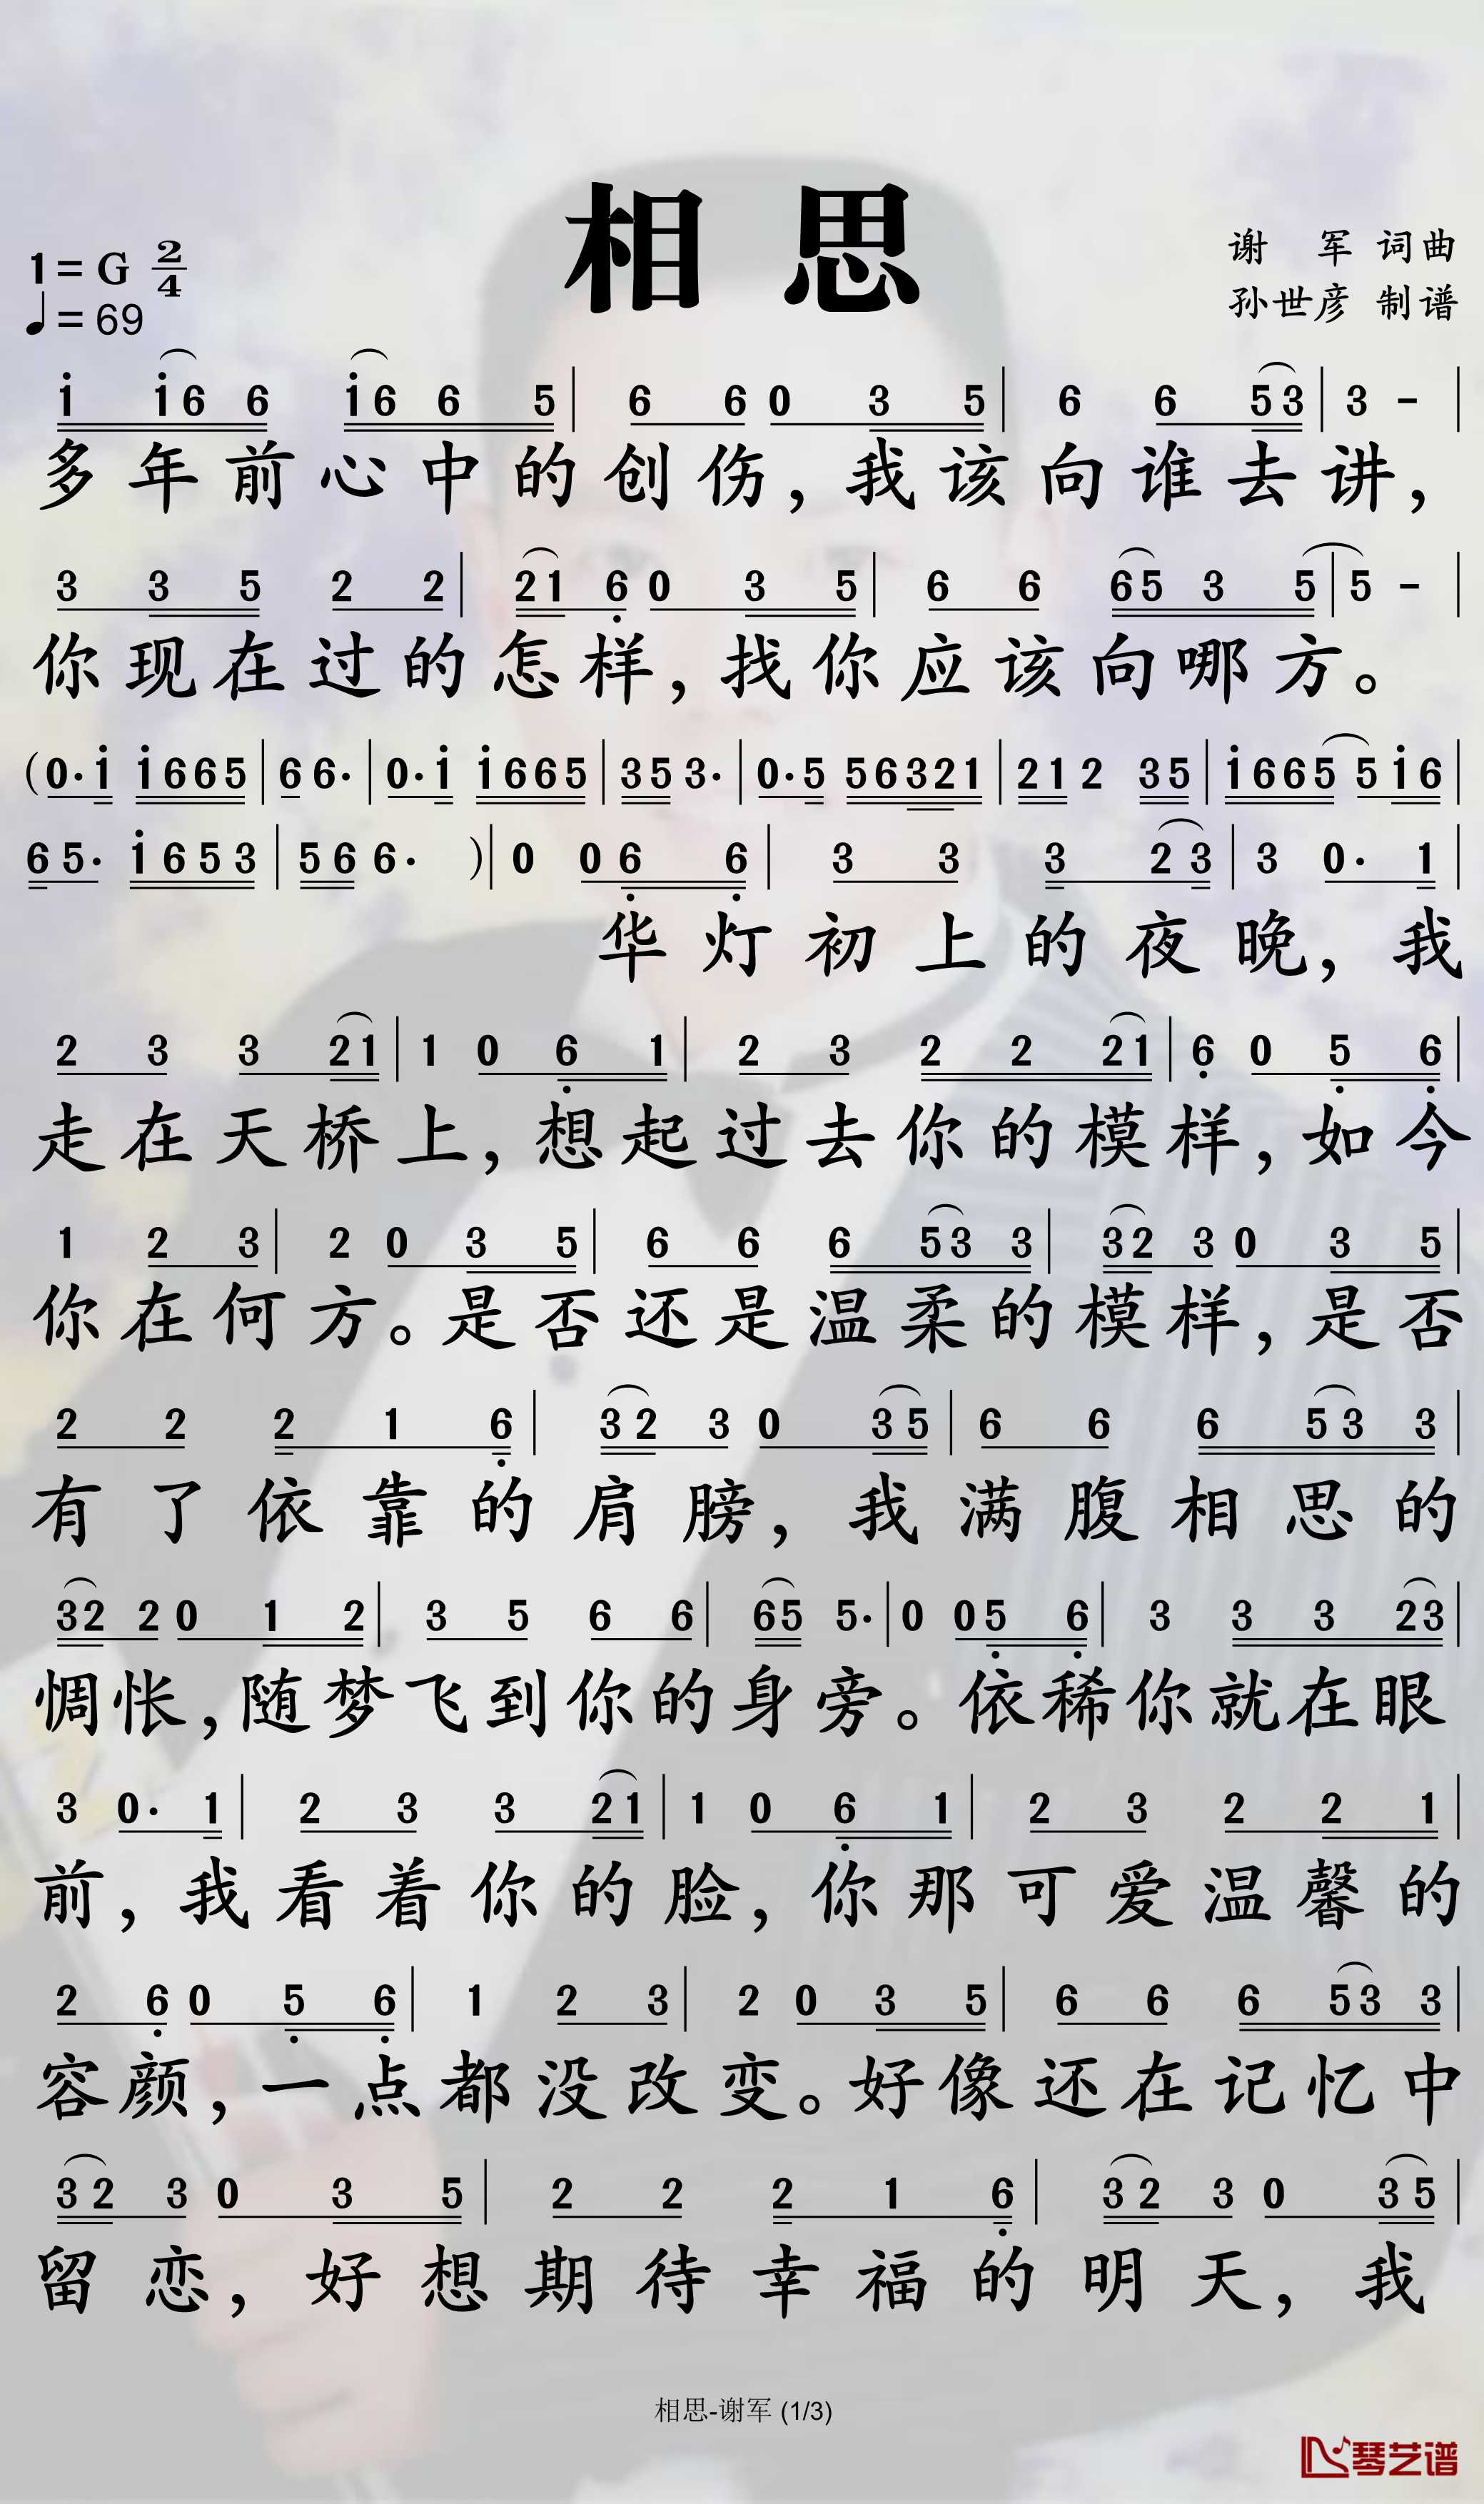 相思
1=G 2/4
♩=69
谢 军 词曲
孙世彦 制谱
i i6 6 i6 6 5 | 6 6 0 3 5 | 6 6 53 | 3 - |
多年前心中的创伤，我该向谁去讲，
3 3 5 2 2 | 21 6 0 3 5 | 6 6 65 3 5 | 5 - |
你现在过的怎样，找你应该向哪方。
(0·i i665 | 6 6· | 0·i i665 | 35 3· | 0·5 56321 | 21 2 35 | i665 5i6 |
6 5· i653 | 56 6· )| 0 0 6 6 | 3 3 3 2 3 | 3 0· 1 |
华灯初上的夜晚，我
2 3 3 21 | 1 0 6 1 | 2 3 2 2 21 | 6 0 5 6 |
走在天桥上，想起过去你的模样，如今
1 2 3 | 2 0 3 5 | 6 6 6 53 3 | 32 3 0 3 5 |
你在何方。是否还是温柔的模样，是否
2 2 2 1 6 | 32 3 0 35 | 6 6 6 53 3 |
有了依靠的肩膀，我满腹相思的
32 2 0 1 2 | 3 5 6 6 | 65 5· | 0 0 5 6 | 3 3 3 23 |
惆怅，随梦飞到你的身旁。依稀你就在眼
3 0· 1 | 2 3 3 21 | 1 0 6 1 | 2 3 2 2 1 |
前，我看着你的脸，你那可爱温馨的
2 6 0 5 6 | 1 2 3 | 2 0 3 5 | 6 6 6 53 3 |
容颜，一点都没改变。好像还在记忆中
32 3 0 3 5 | 2 2 2 1 6 | 32 3 0 35 |
留恋，好想期待幸福的明天，我
相思-谢军 (1/3)
琴艺谱